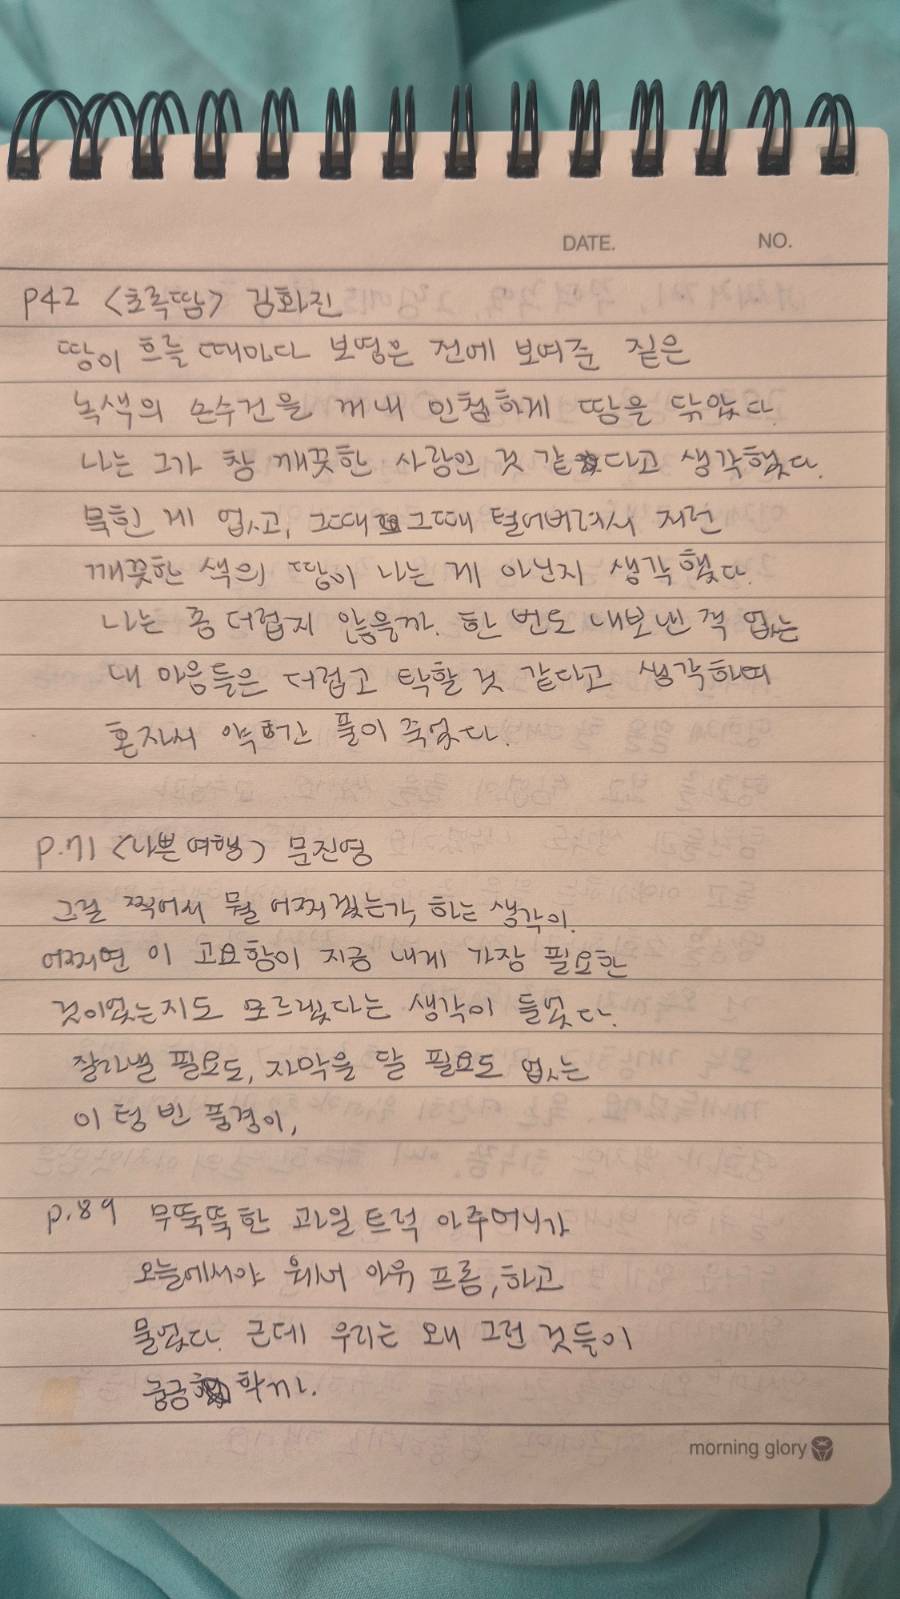 DATE. NO.
P42 <초록땀> 김화진
땅이 흐를 때마다 보영은 전에 보여준 짙은
녹색의 손수건을 꺼내 민첩하게 땀을 닦았다.
나는 그가 참 깨끗한 사람인 것 같다고 생각했다.
묵힌 게 없고, 그때그때 털어버려서 저런
깨끗한 색의 땀이 나는 게 아닌지 생각했다.
나는 좀 더럽지 않을까. 한 번도 내보낸 적 없는
내 마음들은 더럽고 탁할 것 같다고 생각하며
혼자서 약간 풀이 죽었다.
p.71 <나쁜 여행> 문진영
그걸 찍어서 뭘 어찌겠는가, 하는 생각이.
어쩌면 이 고요함이 지금 내게 가장 필요한
것이었는지도 모르겠다는 생각이 들었다.
잘라낼 필요도, 자막을 달 필요도 없는
이 텅 빈 풍경이,
p.89 무뚝뚝한 과일 트럭 아주머니가
오늘에서야 웨어 아유 프롬, 하고
물었다. 근데 우리는 왜 그런 것들이
궁금할까.
morning glory